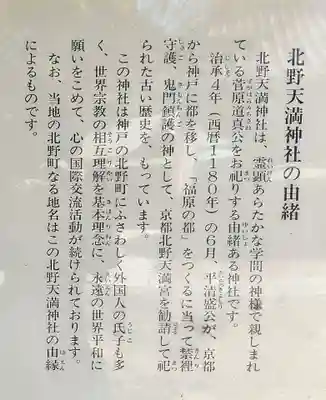 北野天満神社の由緒
北野天満神社は、霊顕あらたかな学問の神様で親しまれ
ている菅原道真公をお祀りする由緒ある神社です。
治承4年(西暦1180年)の6月、平清盛公が、京都
から神戸に都を移し、「福原の都」をつくるに当って禁裡
守護、鬼門鎮護の神として、京都北野天満宮を勧請して祀
られた古い歴史を、もっています。
この神社は神戸の北野町にふさわしく外国人の氏子も多
く、世界宗教の相互理解を基本理念に、永遠の世界平和に
願いをこめて、心の国際交流活動が続けられております。
なお、当地の北野町なる地名はこの北野天満神社の由縁
によるものです。